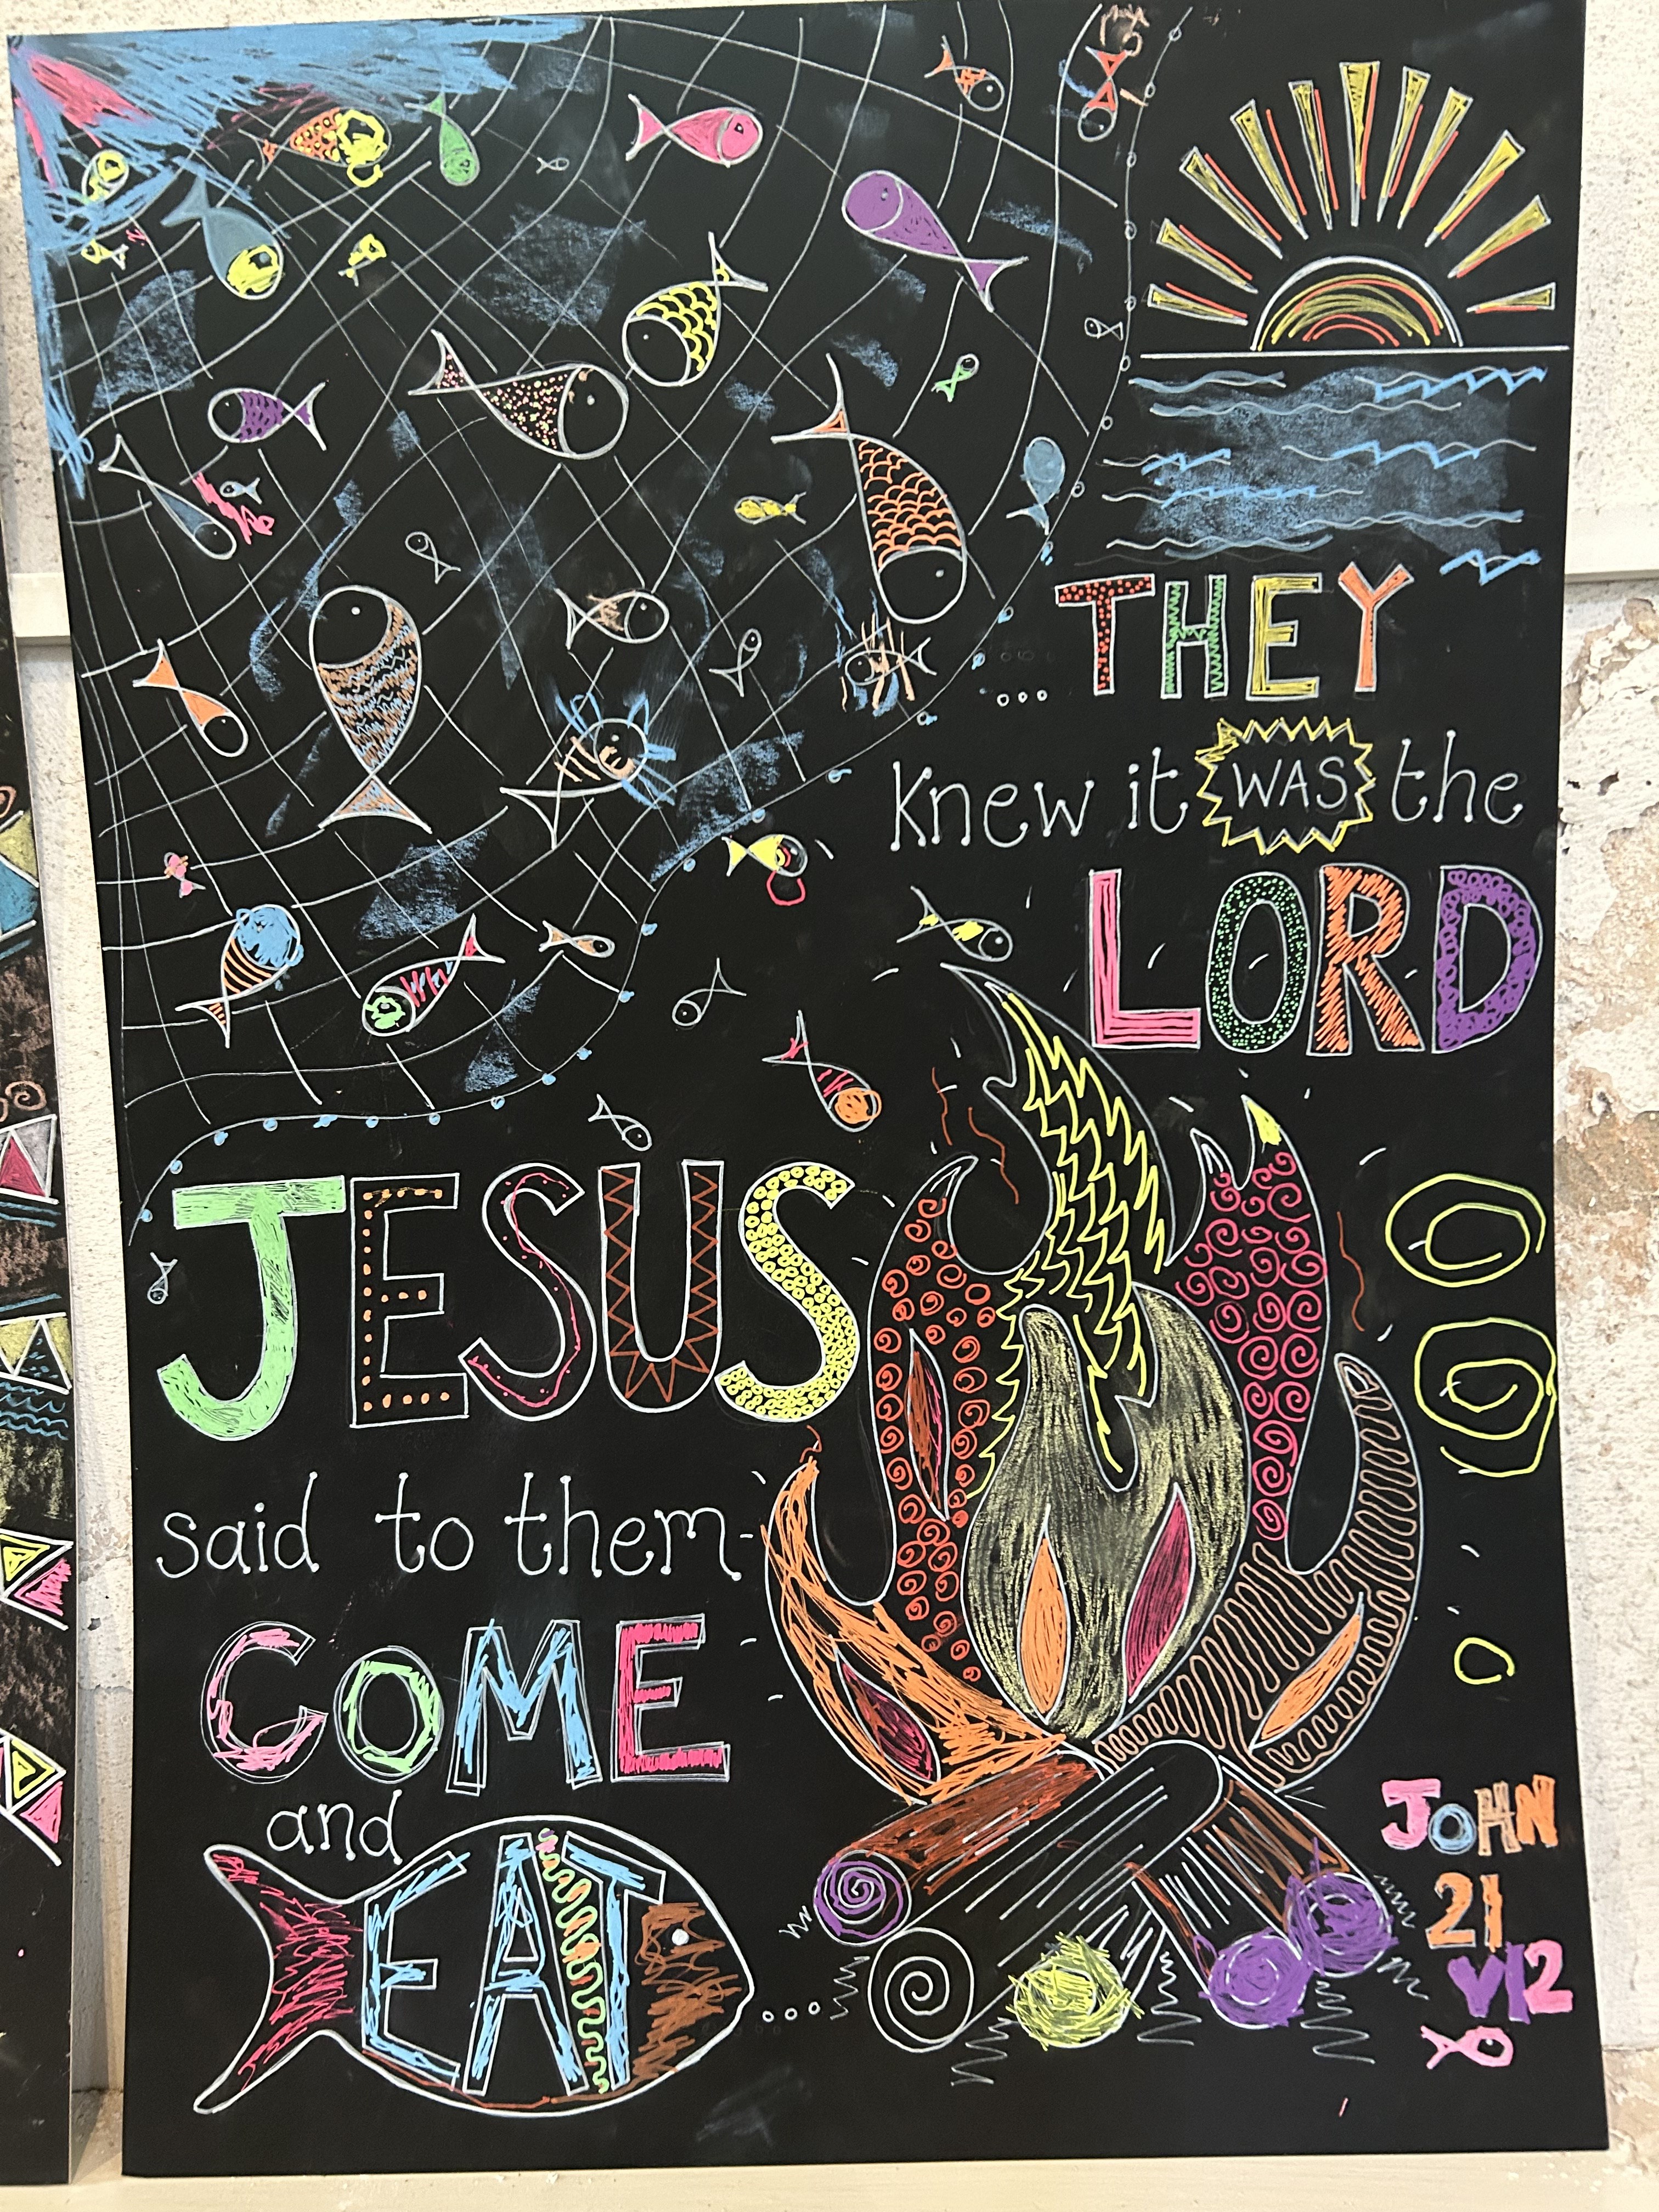 JESUS
said to them-
COME
and
EAT...
...THEY
knew it WAS the
LORD
JOHN
21
V12